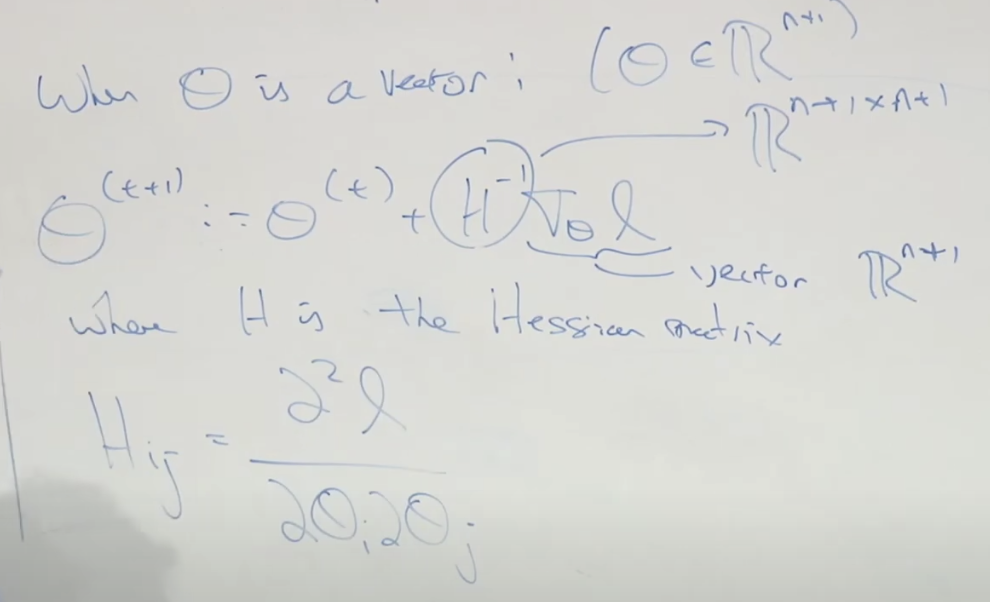 When Θ is a vector: (Θ ∈ ℝ^{n+1})
ℝ^{n+1×n+1}
Θ^{(t+1)} := Θ^{(t)} + H^{-1} ∇_Θ ℓ
vector ℝ^{n+1}
where H is the Hessian matrix
H_{ij} = ∂²ℓ / ∂Θ_i ∂Θ_j